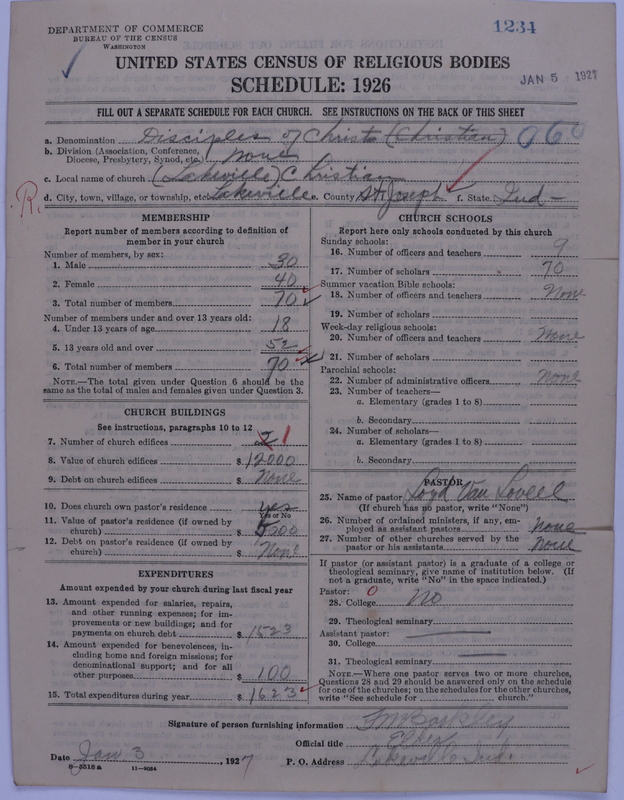 DEPARTMENT OF COMMERCE
BUREAU OF THE CENSUS
WASHINGTON
1234
UNITED STATES CENSUS OF RELIGIOUS BODIES
SCHEDULE: 1926
JAN 5 1927
FILL OUT A SEPARATE SCHEDULE FOR EACH CHURCH. SEE INSTRUCTIONS ON THE BACK OF THIS SHEET
a. Denomination Disciples of Christ (Christian) 060
b. Division (Association, Conference, Diocese, Presbytery, Synod, etc.) none
c. Local name of church (Lakeville) Christian
R.
d. City, town, village, or township, etc. Lakeville e. County St. Joseph f. State Ind-
MEMBERSHIP
Report number of members according to definition of
member in your church
Number of members, by sex:
1. Male 30
2. Female 40
3. Total number of members 70
Number of members under and over 13 years old:
4. Under 13 years of age 18
5. 13 years old and over 52
6. Total number of members 70
NOTE.—The total given under Question 6 should be the
same as the total of males and females given under Question 3.
CHURCH BUILDINGS
See instructions, paragraphs 10 to 12
7. Number of church edifices 2 1
8. Value of church edifices $ 12000
9. Debt on church edifices $ None
10. Does church own pastor's residence yes
Yes or No
11. Value of pastor's residence (if owned by
church) $ 5000
12. Debt on pastor's residence (if owned by
church) $ None
EXPENDITURES
Amount expended by your church during last fiscal year
13. Amount expended for salaries, repairs,
and other running expenses; for im-
provements or new buildings; and for
payments on church debt $ 1523
14. Amount expended for benevolences, in-
cluding home and foreign missions; for
denominational support; and for all
other purposes $ 100
15. Total expenditures during year $ 1623
CHURCH SCHOOLS
Report here only schools conducted by this church
Sunday schools:
16. Number of officers and teachers 9
17. Number of scholars 70
Summer vacation Bible schools:
18. Number of officers and teachers None
19. Number of scholars
Week-day religious schools:
20. Number of officers and teachers None
21. Number of scholars
Parochial schools:
22. Number of administrative officers None
23. Number of teachers—
a. Elementary (grades 1 to 8)
b. Secondary
24. Number of scholars—
a. Elementary (grades 1 to 8)
b. Secondary
PASTOR
25. Name of pastor Loyd Van Lovell
(If church has no pastor, write "None")
26. Number of ordained ministers, if any, em-
ployed as assistant pastors none
27. Number of other churches served by the
pastor or his assistants None
If pastor (or assistant pastor) is a graduate of a college or
theological seminary, give name of institution below. (If
not a graduate, write "No" in the space indicated.)
Pastor: 0
28. College No
29. Theological seminary
Assistant pastor:
30. College
31. Theological seminary
NOTE.—Where one pastor serves two or more churches,
Questions 28 and 29 should be answered only on the schedule
for one of the churches; on the schedules for the other churches,
write "See schedule for church."
Signature of person furnishing information
Official title Elder
Date Jan 3, 1927 P. O. Address Lakeville Ind.
8-5515a 11-9034